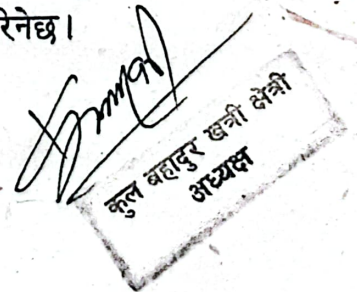 रिनेछ।
कुल बहादुर खत्री क्षेत्री
अध्यक्ष